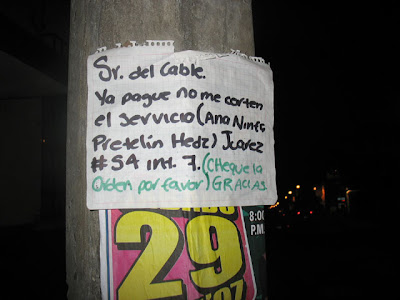 Sr. del Cable.
Ya pague no me corten
el servicio (Ana Ninfa
Pretelín Hedz) Juarez
#54 int. 7. (Cheque la
Orden por favor) GRACIAS.
29
8:00
P.M.